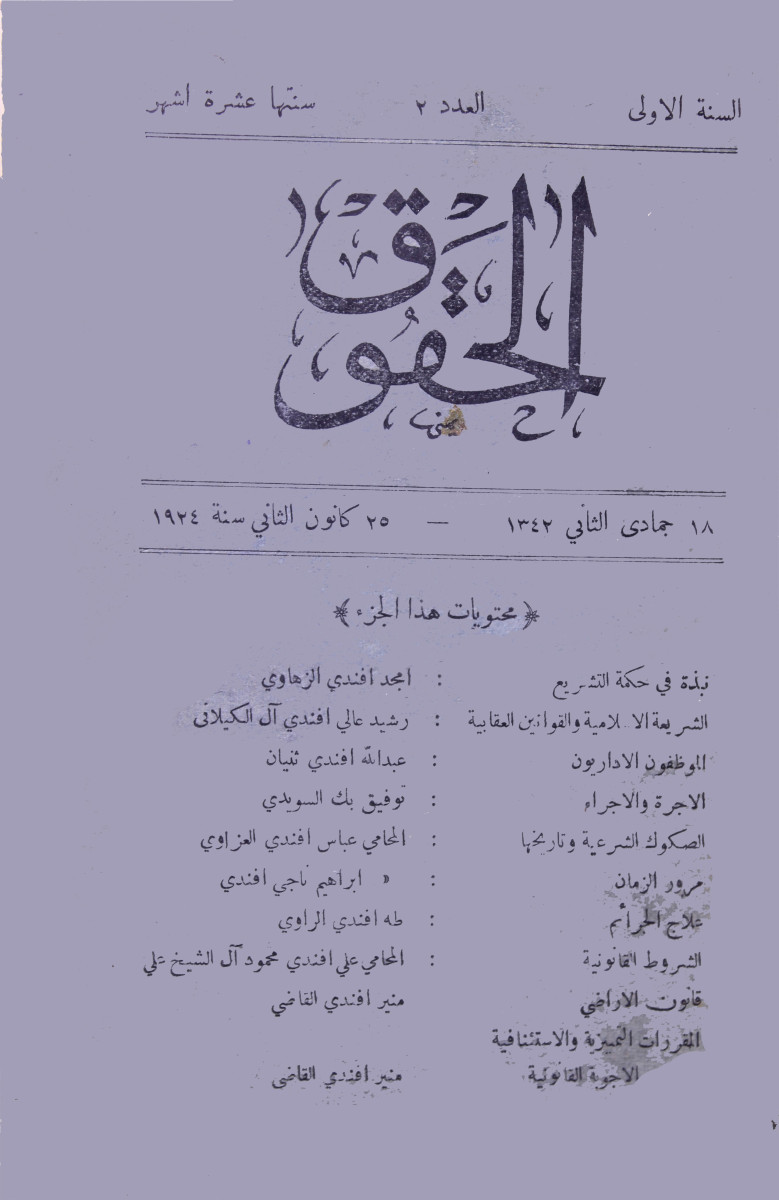 السنة الاولى العدد ٢ سنتها عشرة اشهر
الحقوق
١٨ جمادى الثاني ١٣٤٢ — ٢٥ كانون الثاني سنة ١٩٢٤
﴿ محتويات هذا الجزء ﴾
نبذة في حكمة التشريع : امجد افندي الزهاوي
الشريعة الاسلامية والقوانين العقابية : رشيد عالي افندي آل الكيلانى
الموظفون الاداريون : عبدالله افندي ثنيان
الاجرة والاجراء : توفيق بك السويدي
الصكوك الشرعية وتاريخها : المحامي عباس افندي العزاوي
مرور الزمان : « ابراهيم ناجي افندي
علاج الجرائم : طه افندي الراوي
الشروط القانونية : المحامي علي افندي محمود آل الشيخ علي
قانون الاراضي منير افندي القاضي
المقررات التمييزية والاستئنافية
الاجوبة القانونية منير افندي القاضى